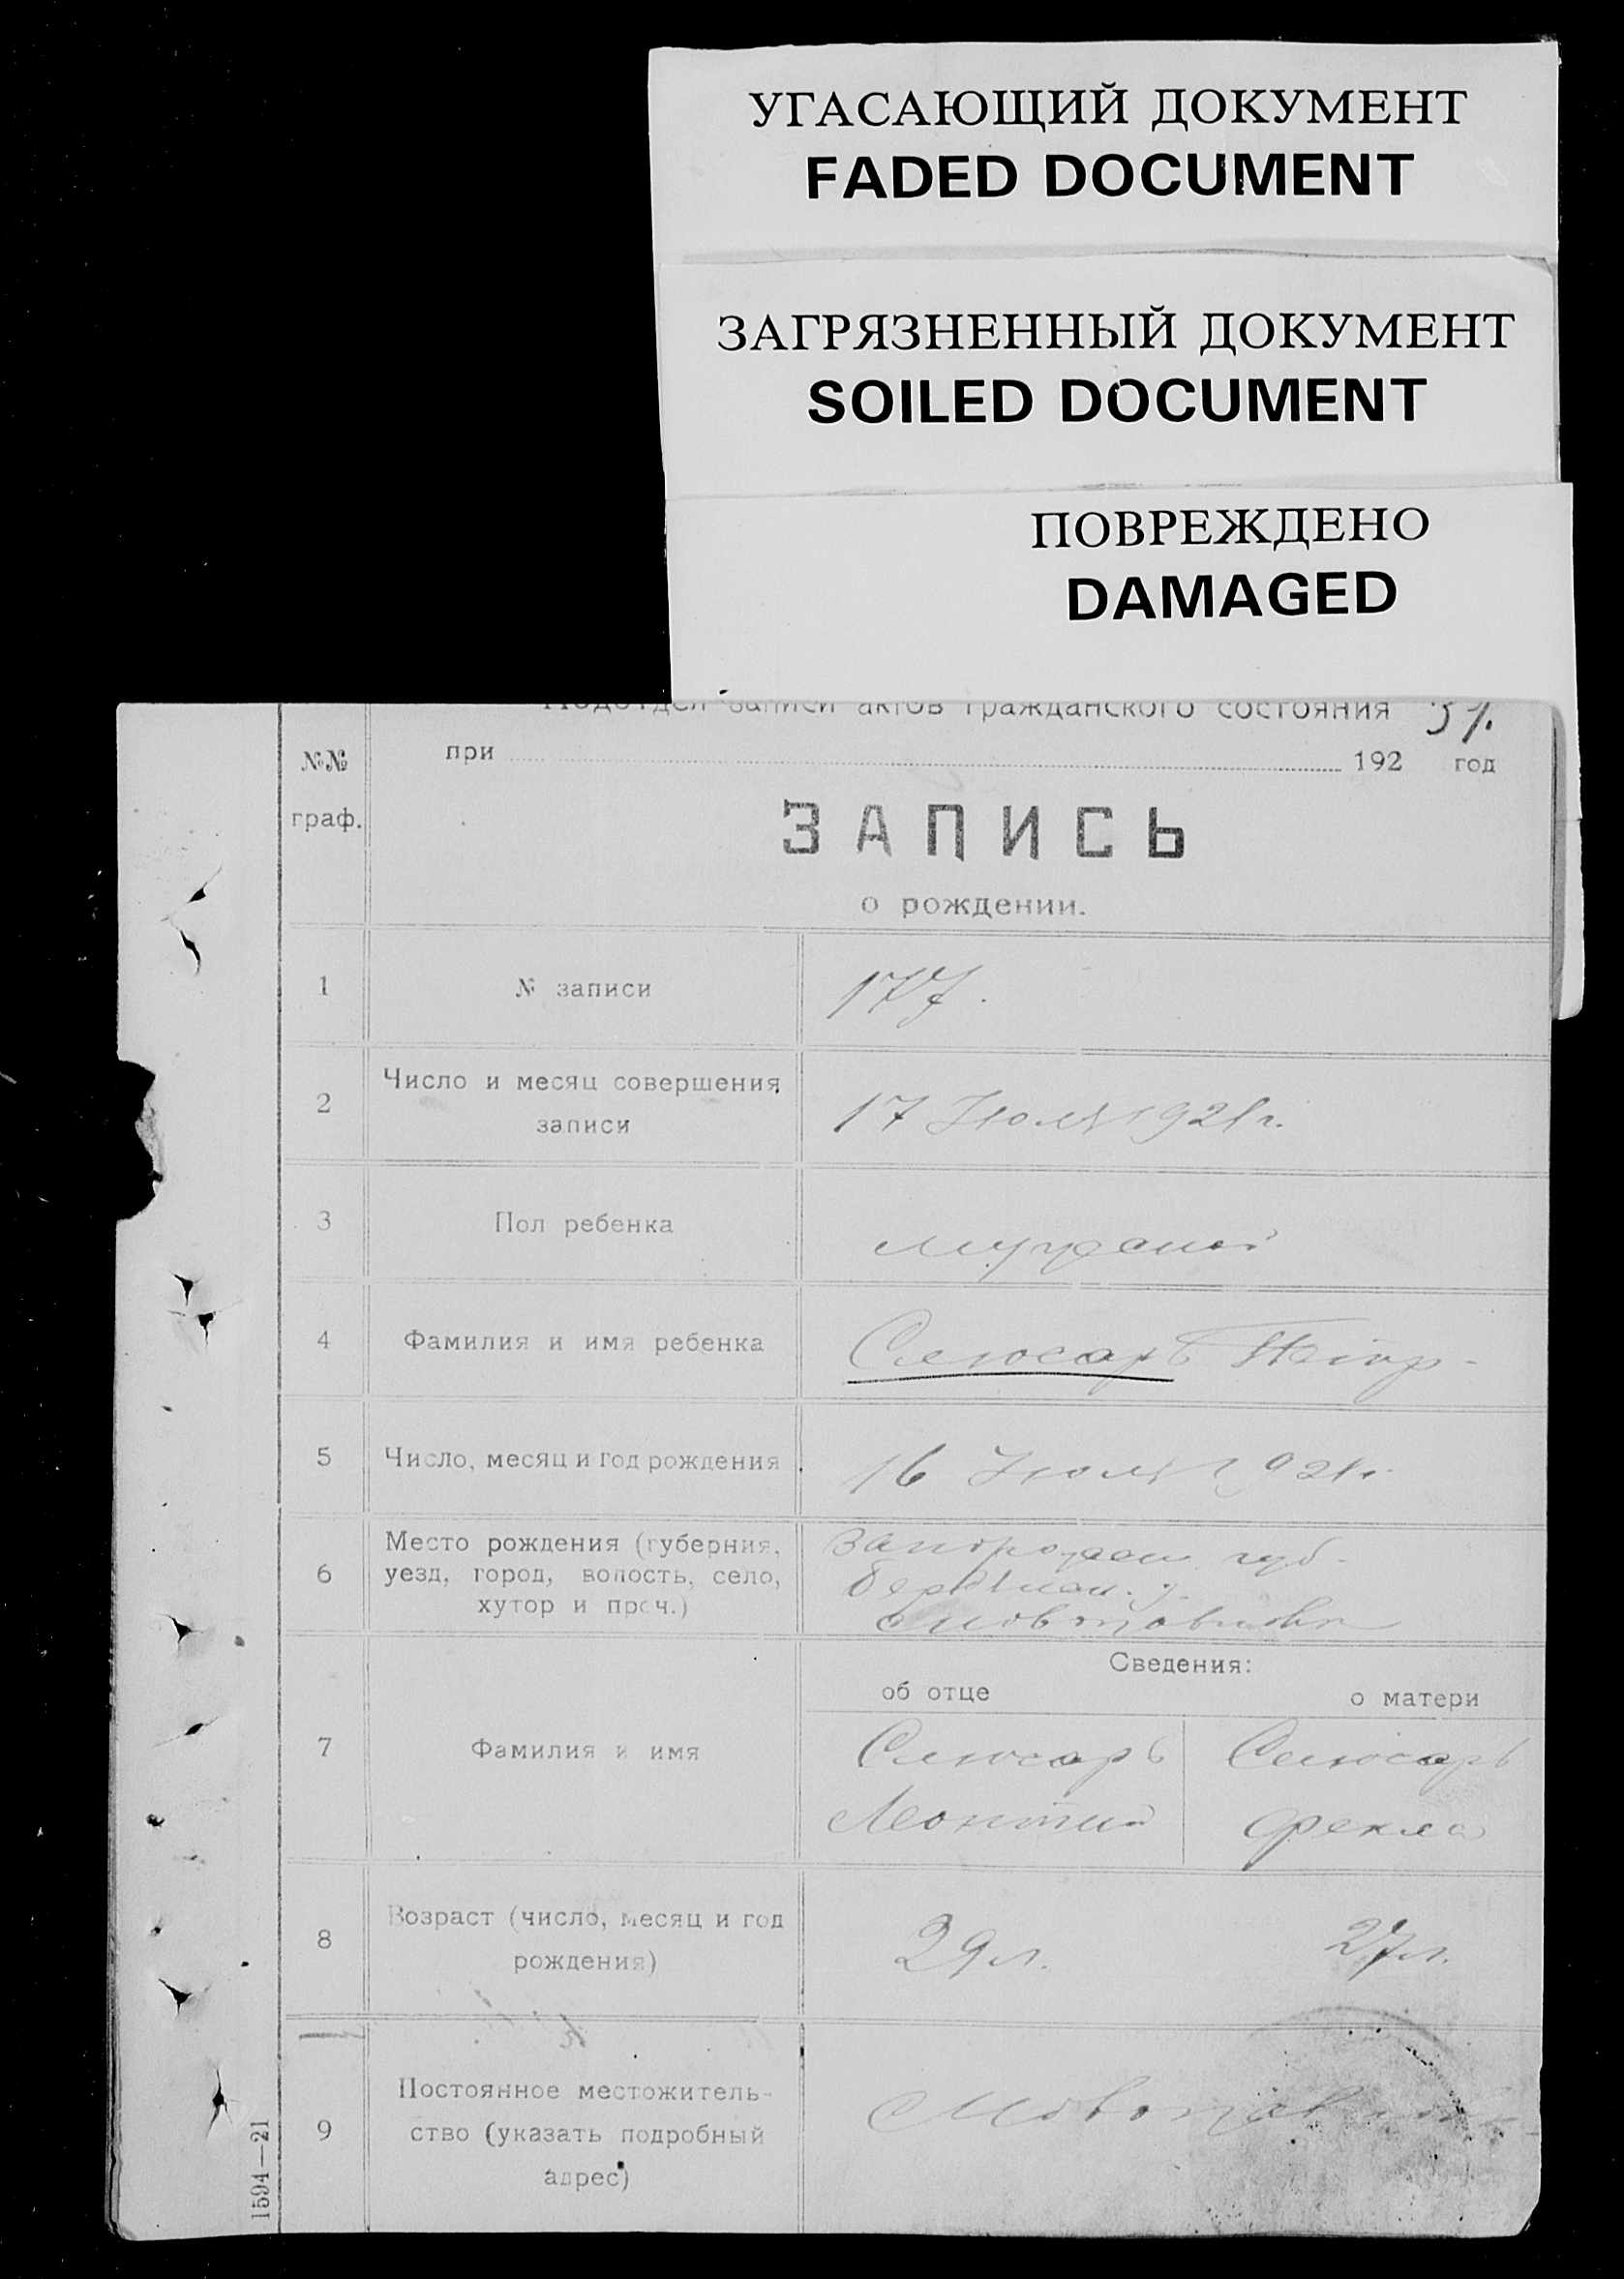 УГАСАЮЩИЙ ДОКУМЕНТ
FADED DOCUMENT
ЗАГРЯЗНЕННЫЙ ДОКУМЕНТ
SOILED DOCUMENT
ПОВРЕЖДЕНО
DAMAGED
Подотдел записи актов гражданского состояния
№№ при 192 год
граф.
ЗАПИСЬ
о рождении.
1 № записи 177.
2 Число и месяц совершения
записи 17 Июля 1921 г.
3 Пол ребенка мужеской
4 Фамилия и имя ребенка Слюсарь
5 Число, месяц и год рождения 16 Июля 1921 г.
6 Место рождения (губерния,
уезд, город, волость, село,
хутор и проч.)
губ.
Сведения:
об отце о матери
7 Фамилия и имя Слюсарь Слюсарь
Леонтий Фекла
8 Возраст (число, месяц и год
рождения) 29 л. 27 л.
9 Постоянное местожитель-
ство (указать подробный
адрес)
1594—21